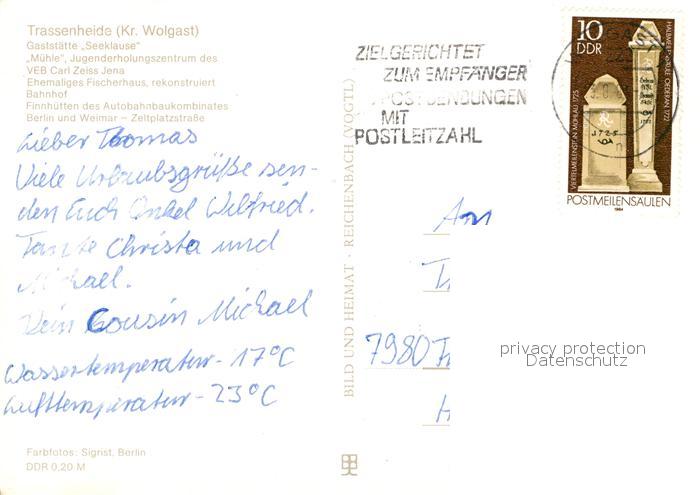 Trassenheide (Kr. Wolgast)
Gaststätte „Seeklause"
„Mühle", Jugenderholungszentrum des
VEB Carl Zeiss Jena
Ehemaliges Fischerhaus, rekonstruiert
Bahnhof
Finnhütten des Autobahnbaukombinates
Berlin und Weimar – Zeltplatzstraße
Lieber Thomas
Viele Urlaubsgrüße sen-
den Euch Onkel Wilfried.
Tante Christa und
Michael.
Dein Cousin Michael
Wassertemperatur - 17°C
Lufttemperatur - 23°C
Farbfotos: Sigrist, Berlin
DDR 0,20 M
BILD UND HEIMAT · REICHENBACH (VOGTL)
ZIELGERICHTET
ZUM EMPFÄNGER
POSTSENDUNGEN
MIT
POSTLEITZAHL
10
DDR
VIERTELMEILENSTEIN MÜHLAU 1725
HALBMEILENSÄULE OEDERAN 1722
1725
POSTMEILENSÄULEN
1984
An
7980
privacy protection
Datenschutz